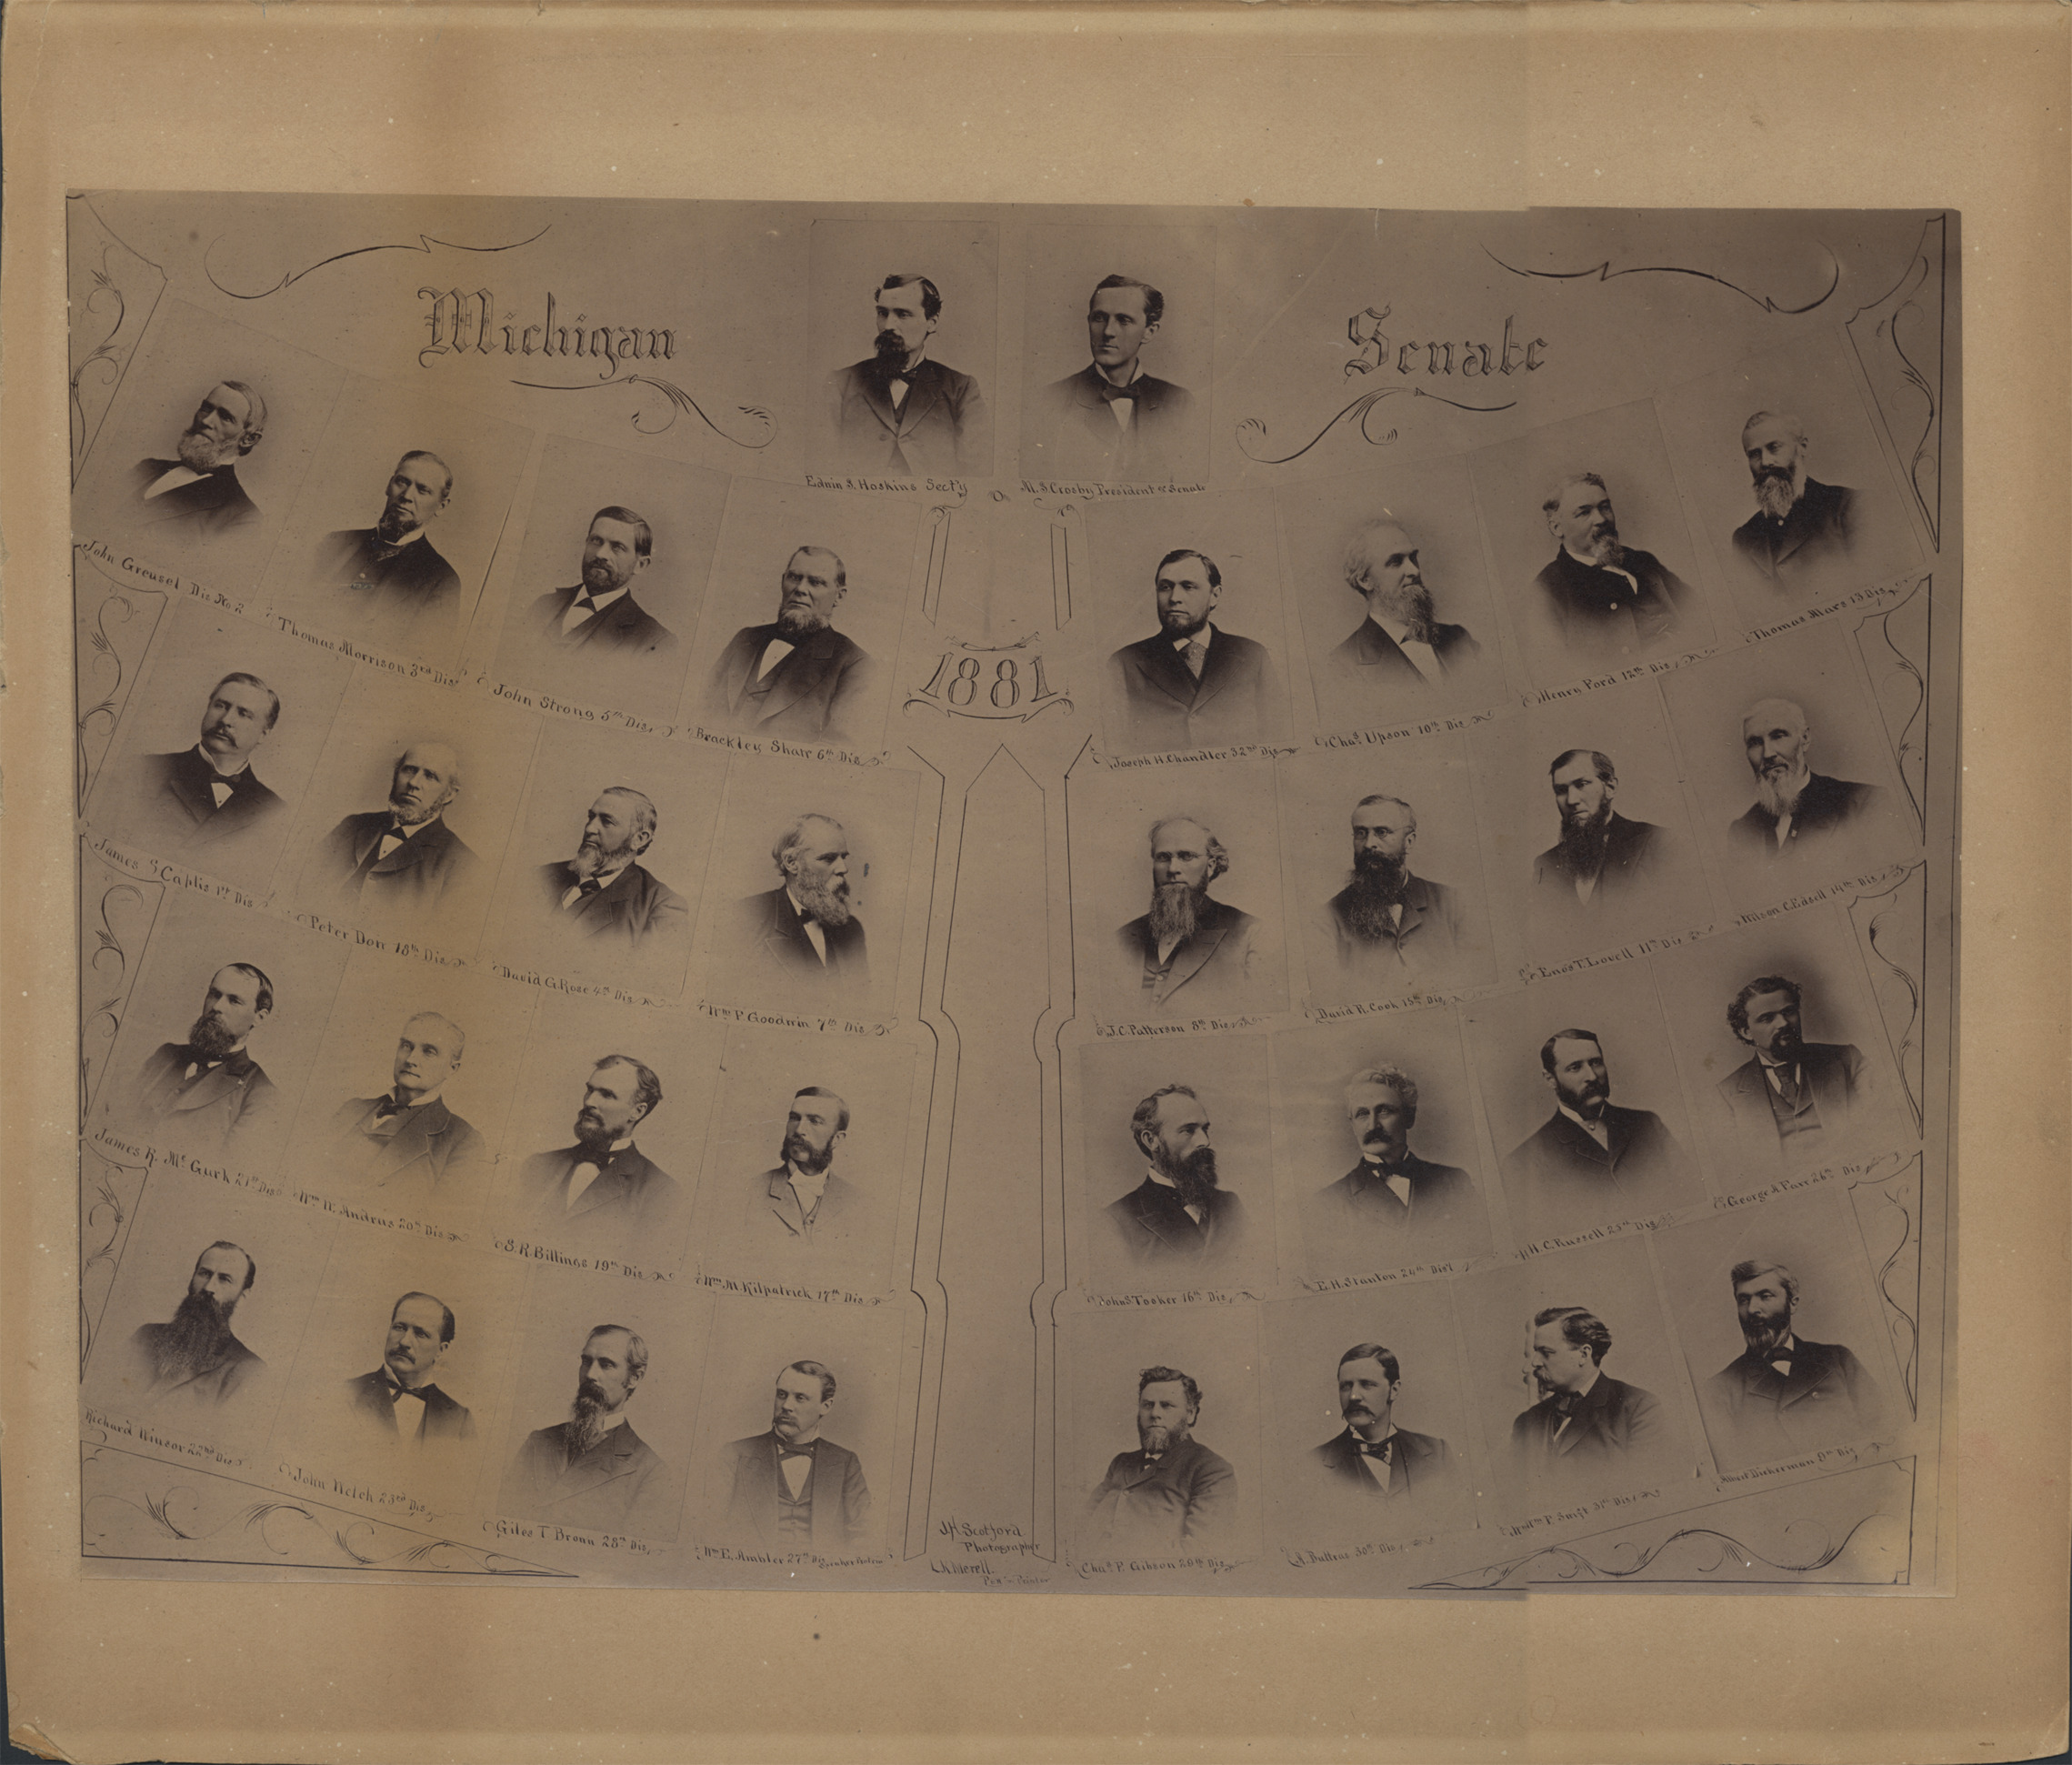 Michigan
Senate
Edwin S. Hoskins Sect'y
M.S. Crosby President of Senate
John Greusel Dis No 2
Thomas Morrison 3rd Dis
John Strong 5th Dis.
Brackley Shaw 6th Dis
1881
Joseph H. Chandler 32nd Dis
Chas. Upson 10th Dis
Henry Ford 12th Dis
Thomas Mars 13 Dis
James Caplis 1st Dis
Peter Dow 18th Dis
David G. Rose 4th Dis
Wm P Goodwin 7th Dis
J.C. Patterson 8th Dis
David R. Cook 15th Dis
Enos T. Lovell 11th Dis
Wilson C. Edsell 14th Dis
James R. Mc Gurk 21st Dis
Wm W. Andrus 20th Dis
S.R. Billings 19th Dis
Wm. M. Kilpatrick 17th Dis
John S Tooker 16th Dis
E.H. Stanton 24th Dist
H.C. Russell 25th Dis
George A Farr 26th Dis
Richard Winsor 22nd Dis
John Welch 23rd Dis
Giles T Brown 28th Dis.
Wm E. Ambler 27th Dis
Chas. P. Gibson 29th Dis
J. Buttars 30th Dis
Wm P. Swift 31st Dis
Albert Dickerman 9th Dis
J.H. Scotford
Photographer